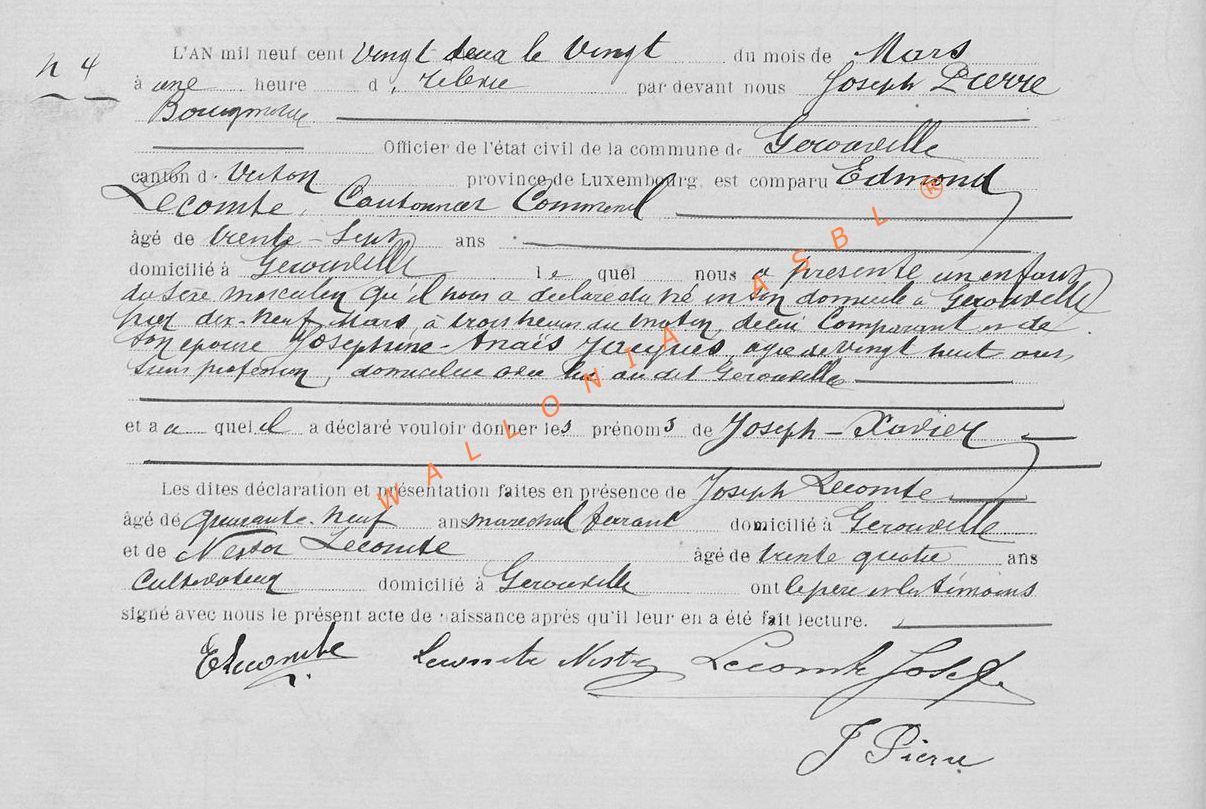 n 4
L'AN mil neuf cent vingt deux le vingt du mois de Mars
à une heure d par devant nous Joseph Pierre
Bourgmestre
Officier de l'état civil de la commune de Gérouville
canton d. Virton province de Luxembourg, est comparu Edmond
Lecomte, Cantonnier Communal
âgé de trente-sept ans
domicilié à Gérouville le quel nous a présenté un enfant
du sexe masculin qu'il nous a déclaré être né en son domicile à Gérouville
hier dix-neuf Mars, à trois heures du matin, de lui Comparant et de
son épouse Joséphine-Anaïs Jacques, agée de vingt huit ans,
sans profession, domiciliée avec lui audit Gérouville
et a a quel il a déclaré vouloir donner les prénoms de Joseph-Xavier
Les dites déclaration et présentation faites en présence de Joseph Lecomte
âgé de quarante-neuf ans maréchal ferrant domicilié à Gérouville
et de Nestor Lecomte âgé de trente quatre ans
Cultivateur domicilié à Gérouville ont le père et les témoins
signé avec nous le présent acte de naissance après qu'il leur en a été fait lecture.
E Lecomte Lecomte Nestor Lecomte Joseph
J Pierre
WALLONIA ASBL ®